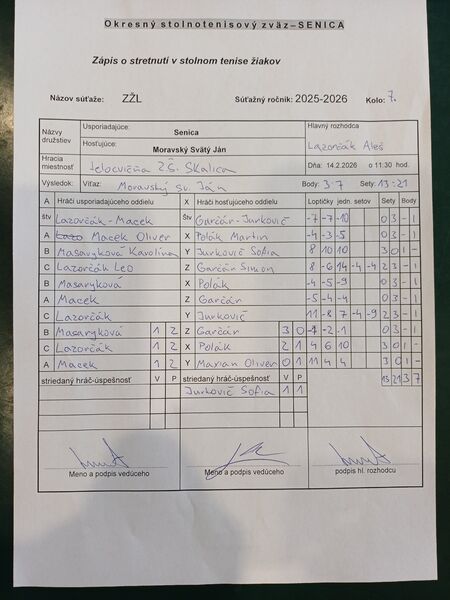 Okresný stolnotenisový zväz–SENICA
Zápis o stretnutí v stolnom tenise žiakov
Názov súťaže: ZŽL Súťažný ročník: 2025-2026 Kolo: 7.
Názvy družstiev Usporiadajúce: Senica Hlavný rozhodca
Hosťujúce: Moravský Svätý Ján Lazorčák Aleš
Hracia miestnosť telocvičňa ZŠ. Skalica Dňa: 14.2.2026 o 11:30 hod.
Výsledok: Víťaz: Moravský Sv. Ján Body: 3-7 Sety: 13:21
A Hráči usporiadajúceho oddielu X Hráči hosťujúceho oddielu Loptičky jedn. setov Sety Body
štv Lazorčák-Macek Štv Garčár-Jurkovič -7 -7 -10 0 3 - 1
A Macek Oliver X Polák Martin -4 -3 -5 0 3 - 1
B Masaryková Karolína Y Jurkovič Sofia 8 10 10 3 0 1 -
C Lazorčák Leo Z Garčár Simon 8 -6 14 -4 -4 2 3 - 1
B Masaryková X Polák -4 -5 -9 0 3 - 1
A Macek Z Garčár -5 -4 -4 0 3 - 1
C Lazorčák Y Jurkovič 11 -8 7 -4 -9 2 3 - 1
B Masaryková 1 2 Z Garčár 3 0 -2 -1 0 3 - 1
C Lazorčák 1 2 X Polák 2 1 4 6 10 3 0 1 -
A Macek 1 2 Y Marian Oliver 0 1 11 4 4 3 0 1 -
striedaný hráč-úspešnosť V P striedaný hráč-úspešnosť V P 13 21 3 7
Jurkovič Sofia 1 1
Meno a podpis vedúceho Meno a podpis vedúceho podpis hl. rozhodcu